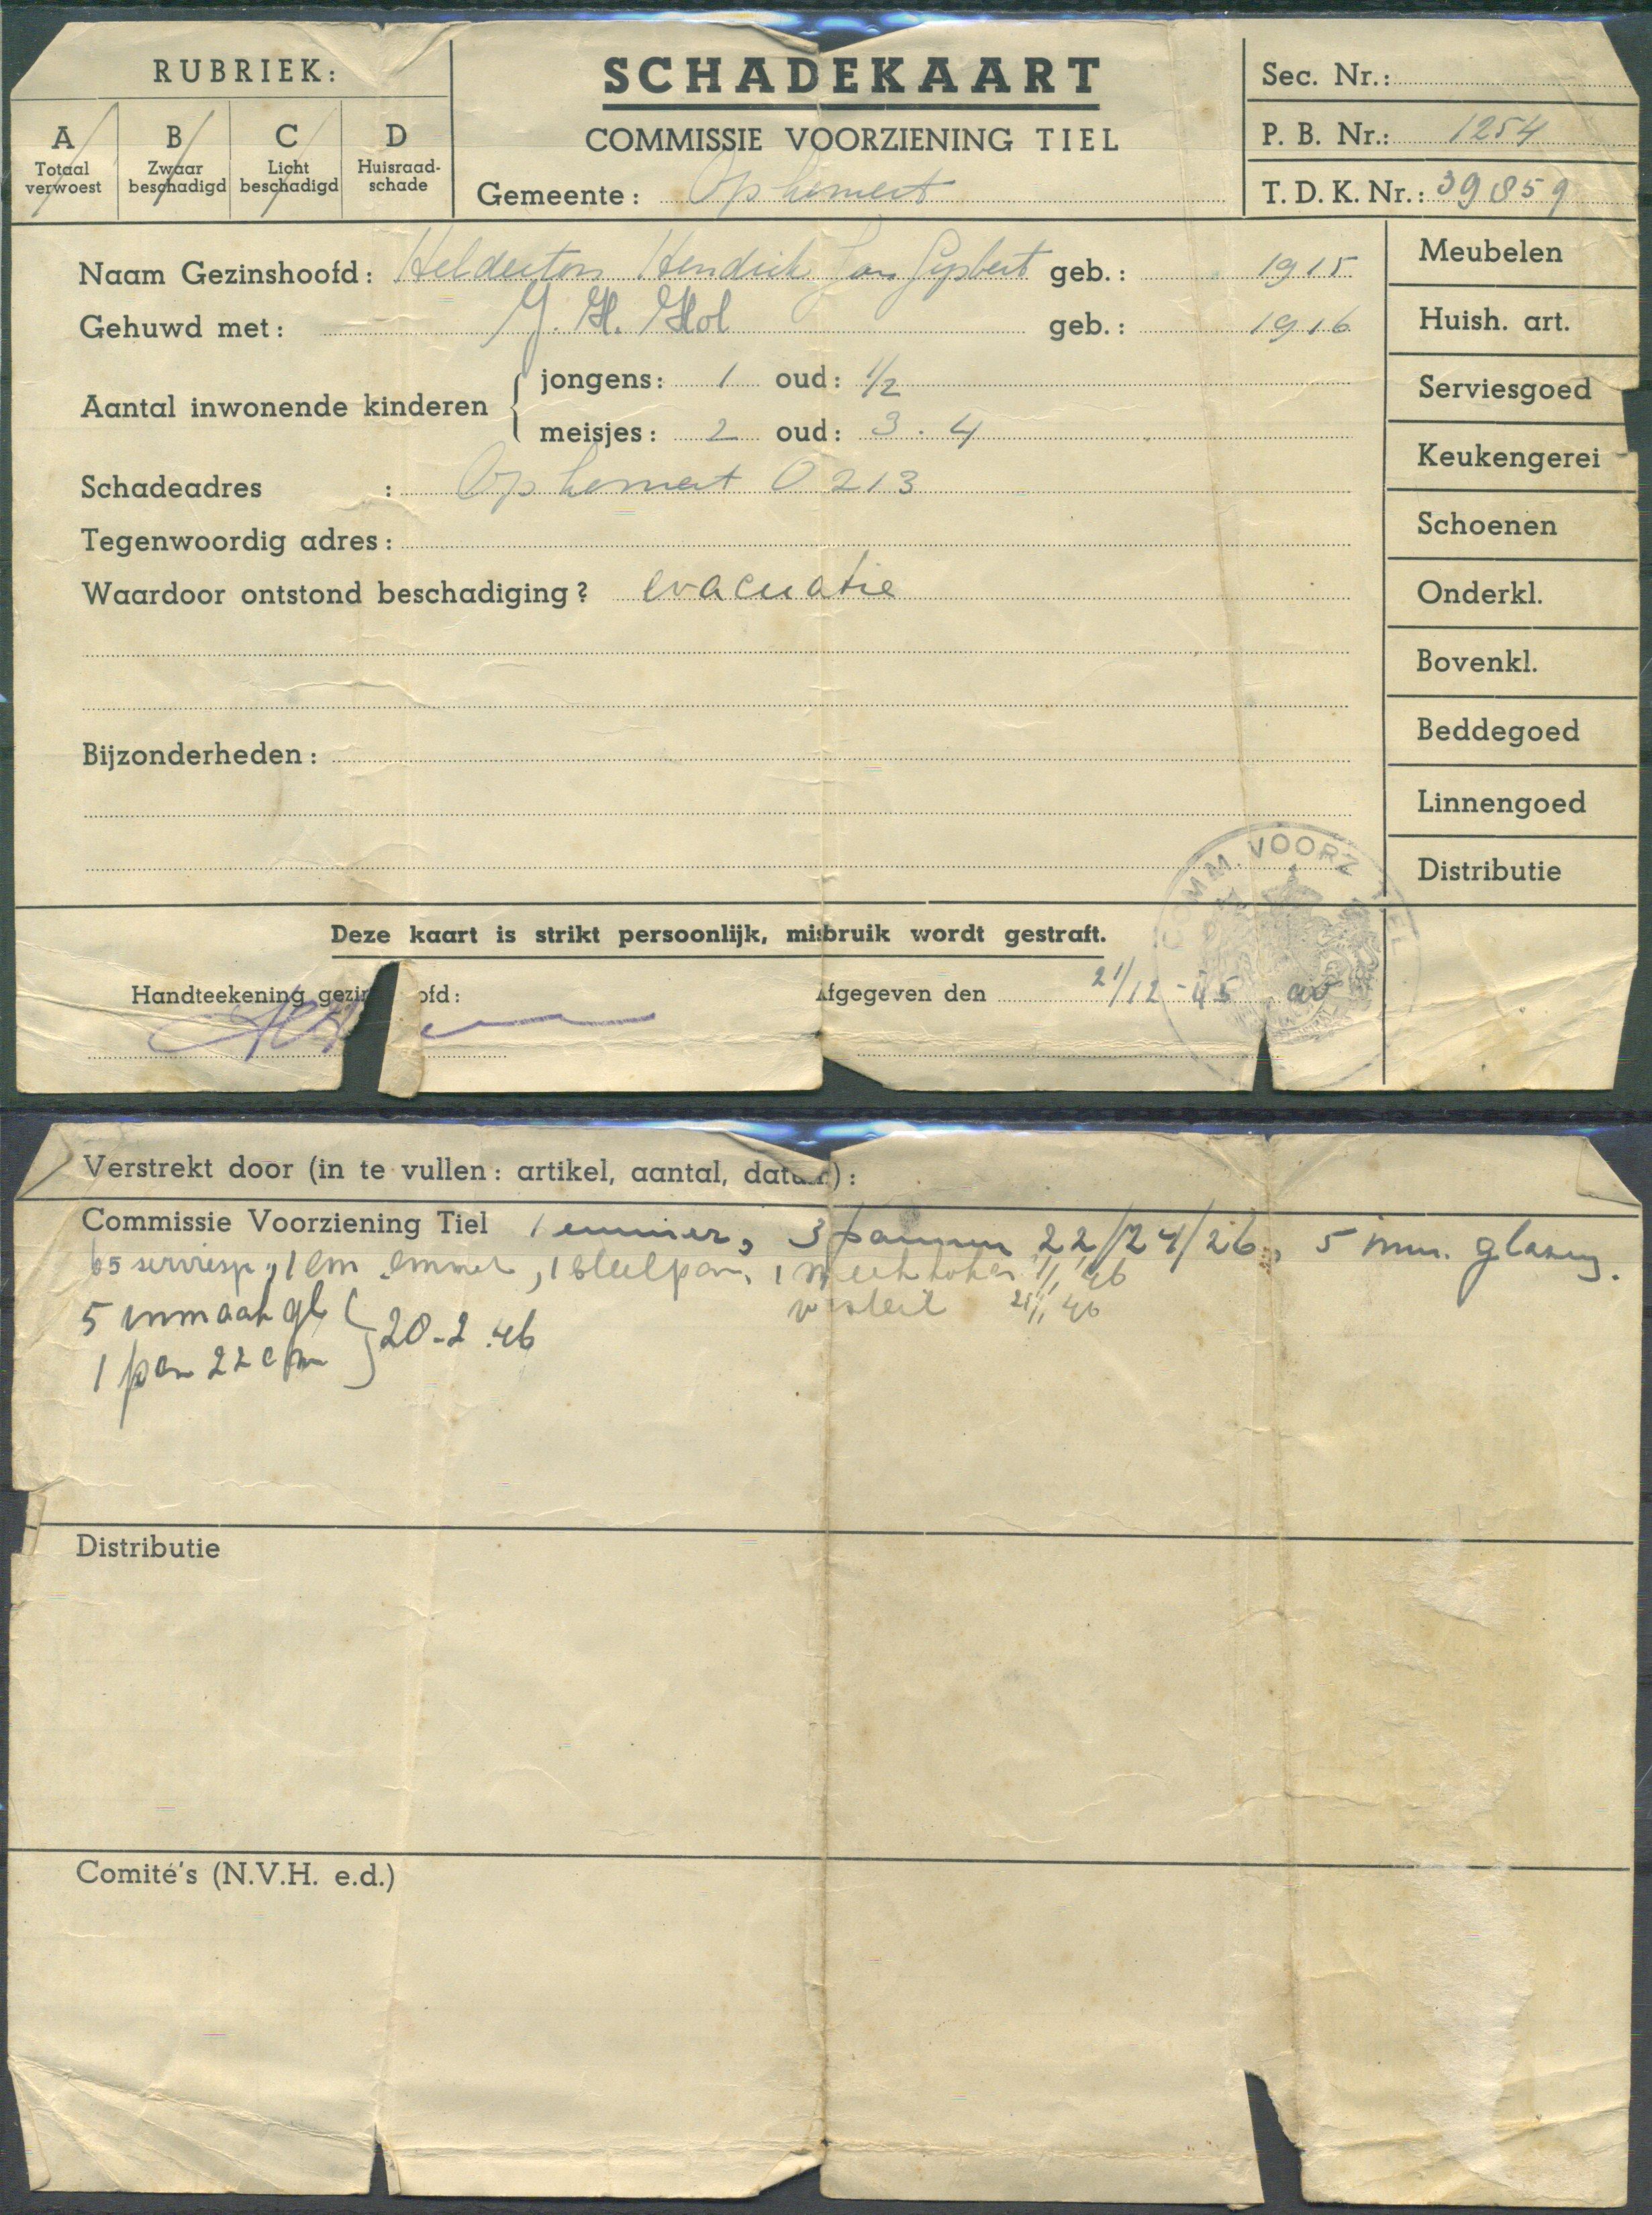 RUBRIEK:
A
Totaal
verwoest
B
Zwaar
beschadigd
C
Licht
beschadigd
D
Huisraad-
schade
SCHADEKAART
COMMISSIE VOORZIENING TIEL
Gemeente: Ophemert
Sec. Nr.:
P. B. Nr.: 1254
T. D. K. Nr.: 39859
Naam Gezinshoofd: Hendrik Jan Gysbert geb.: 1915
Gehuwd met: G. H. Hol geb.: 1916
Aantal inwonende kinderen
jongens: 1 oud: 1/2
meisjes: 2 oud: 3. 4
Schadeadres : Ophemert 0213
Tegenwoordig adres:
Waardoor ontstond beschadiging? evacuatie
Bijzonderheden:
Meubelen
Huish. art.
Serviesgoed
Keukengerei
Schoenen
Onderkl.
Bovenkl.
Beddegoed
Linnengoed
Distributie
Deze kaart is strikt persoonlijk, misbruik wordt gestraft.
Handteekening gezin ofd:
Afgegeven den 21/12-45
COMM. VOORZ. TIEL
Verstrekt door (in te vullen: artikel, aantal, datum):
Commissie Voorziening Tiel 1 emmer, 3 pannen 22/24/26, 5 inm. glazen.
serviesp, 1 em emmer, 1 steelpan, 1 46
5 inmaak gl
1 pan 22 cm } 20-2.46
Distributie
Comité's (N.V.H. e.d.)